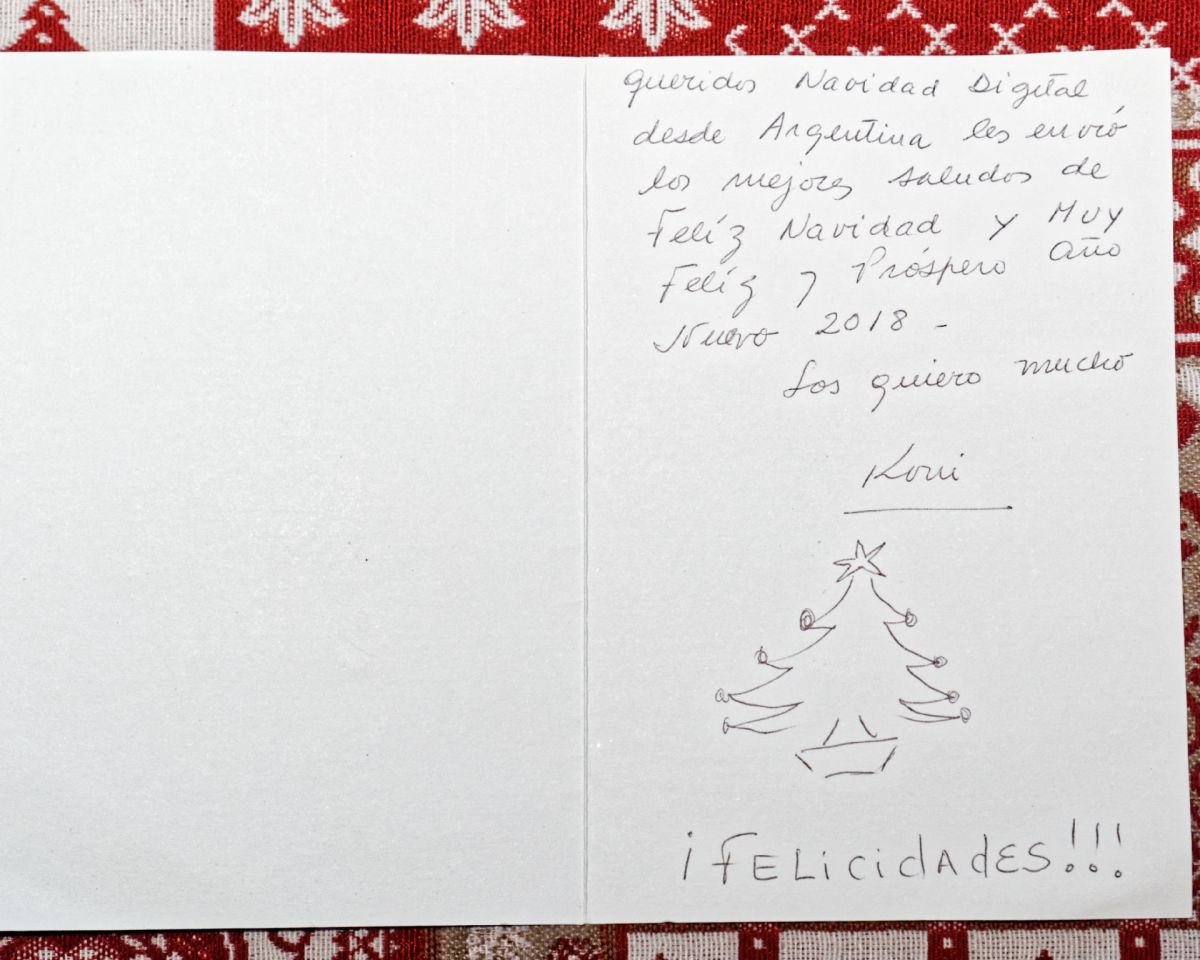 Queridos Navidad Digital
desde Argentina les envió
los mejores saludos de
Felíz Navidad y Muy
Felíz y Próspero año
Nuevo 2018 -
Los quiero mucho
Koni
¡FELicidAdES!!!